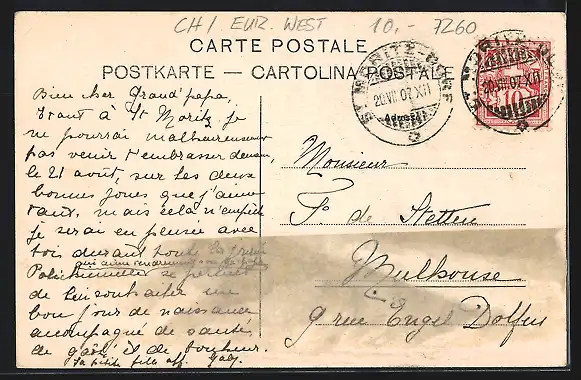 CH / EUR. WEST 10,- 7260
CARTE POSTALE
POSTKARTE — CARTOLINA POSTALE
ST. MORITZ-DORF
20.VIII.07.XII
Bien cher Grand'papa,
Étant à St Moritz je
ne pourrai malheureusement
pas venir t'embrasser demain,
le 21 août, sur les deux
bonnes joues que j'aime
tant, mais cela n'empêche
je serai en pensée avec
toi durant toute
qui aime
se permet
de lui souhaiter un
bon jour de naissance
accompagné de santé
de gaîté et de bonheur.
Ta petite fille aff. Gaby.
Monsieur
F. de Stetten
Mulhouse
9 rue Engel Dolfus
10